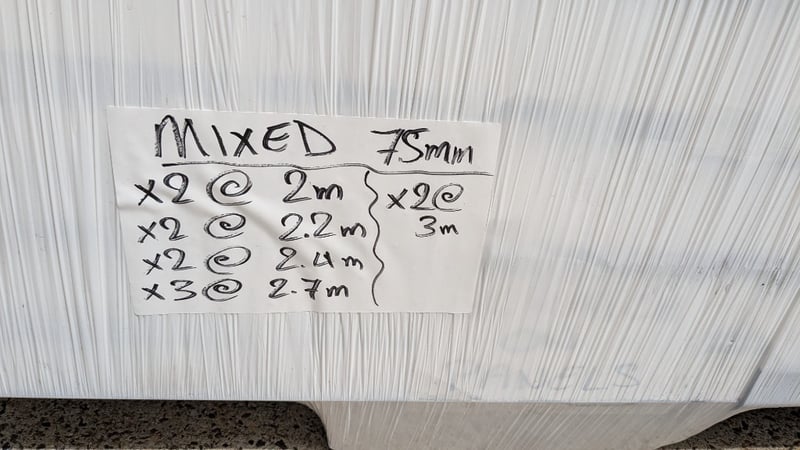 MIXED 75mm
x2 @ 2m
x2 @ 2.2m
x2 @ 2.4m
x3 @ 2.7m
x2@
3m
PANELS